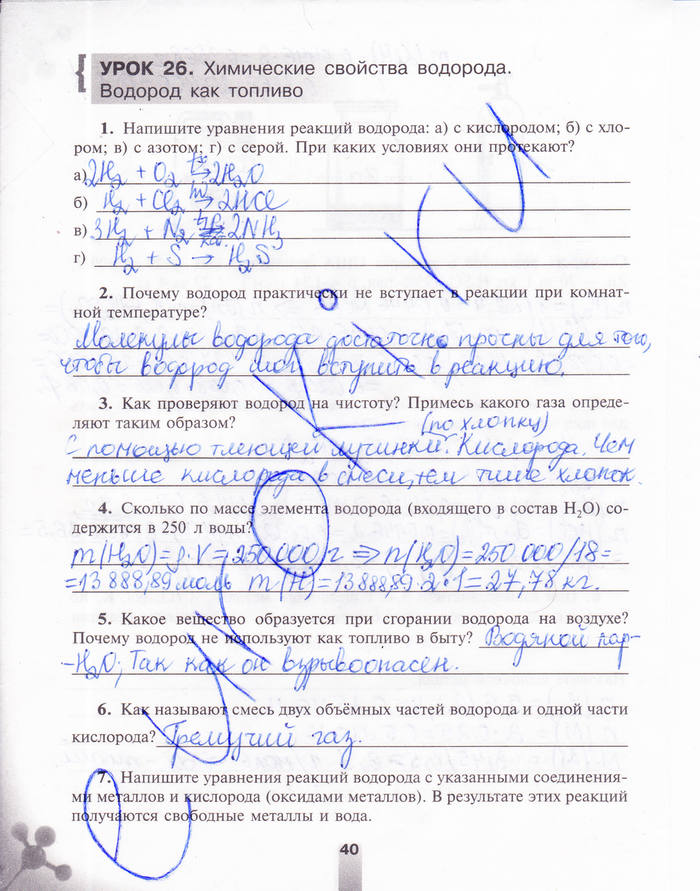 УРОК 26. Химические свойства водорода.
Водород как топливо
1. Напишите уравнения реакций водорода: а) с кислородом; б) с хло-
ром; в) с азотом; г) с серой. При каких условиях они протекают?
а) 2H₂ + O₂ → 2H₂O
б) H₂ + Cl₂ hν→ 2HCl
в) 3H₂ + N₂ ⇄ 2NH₃
г) H₂ + S → H₂S
2. Почему водород практически не вступает в реакции при комнат-
ной температуре?
Молекулы водорода достаточно прочны для того,
чтобы водород смог вступить в реакцию.
3. Как проверяют водород на чистоту? Примесь какого газа опреде-
ляют таким образом?
(по хлопку)
С помощью тлеющей лучинки. Кислорода. Чем
меньше кислорода в смеси, тем тише хлопок.
4. Сколько по массе элемента водорода (входящего в состав H₂O) со-
держится в 250 л воды?
m(H₂O)=ρ·V=250 000 г ⇒ n(H₂O)=250 000/18=
=13 888,89 моль m(H)=13 888,89·2·1=27,78 кг.
5. Какое вещество образуется при сгорании водорода на воздухе?
Почему водород не используют как топливо в быту? Водяной пар-
-H₂O; Так как он взрывоопасен.
6. Как называют смесь двух объёмных частей водорода и одной части
кислорода? Гремучий газ.
7. Напишите уравнения реакций водорода с указанными соединения-
ми металлов и кислорода (оксидами металлов). В результате этих реакций
получаются свободные металлы и вода.
40